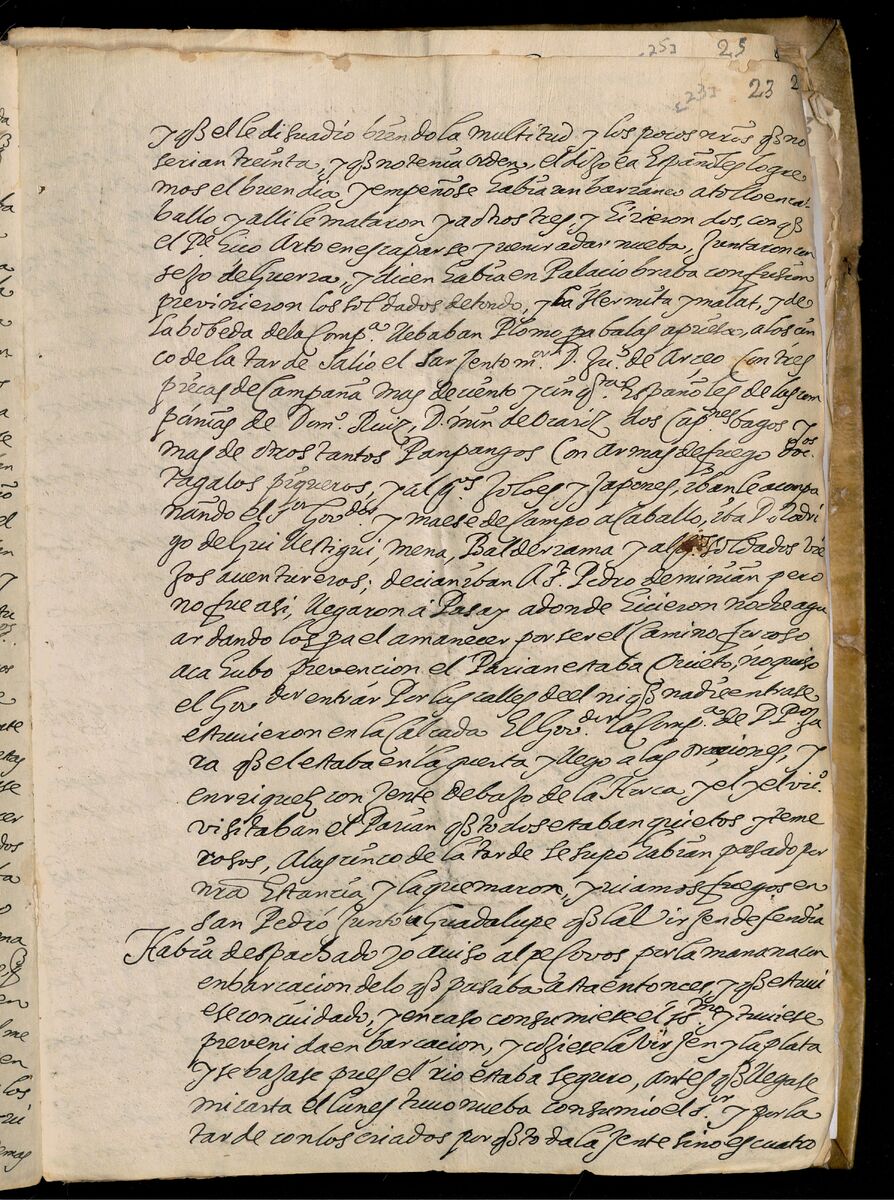 253 25
233 23 2
y q̃ el le disuadio biendo la multitud y los pocos nr̃os q̃ no
serian treinta, y q̃ no tenia orden, el dijo ea Españoles logre
mos el buen dia, y empeñose habia un barranco atollo en ca
ballo y alli le mataron y a otros tres, y hirieron dos, con q̃
el Pe hico Arto en escaparse y venir a dar nueba, Juntaron con
sejo de Guerra, y dicen habia en Palacio braba confusion
previnieron los soldados y la Hermita y malat, y de
la bobeda de la Compa. llebaban Plomo pa balas aprisa, a los cin
co de la tarde salio el sarjento mor D. Ju. de Arceo Con tres
piecas de Campaña mas de ciento y cinqtas Españoles de las com
pañias de Domo. Ruiz, D. min de Ocariz dos Capnes bagos y
mas de otros tantos Panpangos Con armas de fuego
tagalos piqueros, y alg.s Joloes y Japones, iban le acompa
ñando el Sor Govdor y maese de campo a Caballo, iba D. Rodri
go de Gui llestigui, mena, Balderrama y soldados vie
jos aventureros; decian iban A S. Pedro deminian pero
no fue asi, llegaron a Pasay adonde hicieron noche agu
ardando los pa el amanecer por ser el Camino forcoso
aca hubo prevencion el Parian estaba Quieto, no quiso
el Govdor entrar Por las calles de el ni q̃ nadie entrase
estuvieron en la Calcada El Govdor la Compa de D P.o Ja
ra q̃ el estaba en la puerta y llego a las oraciones, y
enrriquez con Jente debajo de la Horca y el
visitaban el Parian q̃ todos estaban quietos y teme
rosos, A las cinco de la tarde se supo habian pasado por
nr̃a Estancia y la quemaron, y viamos fuegos en
san Pedro Junto a Guadalupe q̃ la Virjen defendia
Habia despachado yo aviso al pe Covos por la mañana con
enbarcacion de lo q̃ pasaba asta entonces, y q̃ estuvi
ese con cuidado, y en caso consumiese el y tuviese
prevenida enbarcacion, y cojiese la virjen y la plata
y se bajase pues el rio estaba seguro, antes q̃ llegase
mi carta el lunes tuvo nueba consumio el sr y por la
tarde con los criados por q̃ toda la Jente sino es cuatro